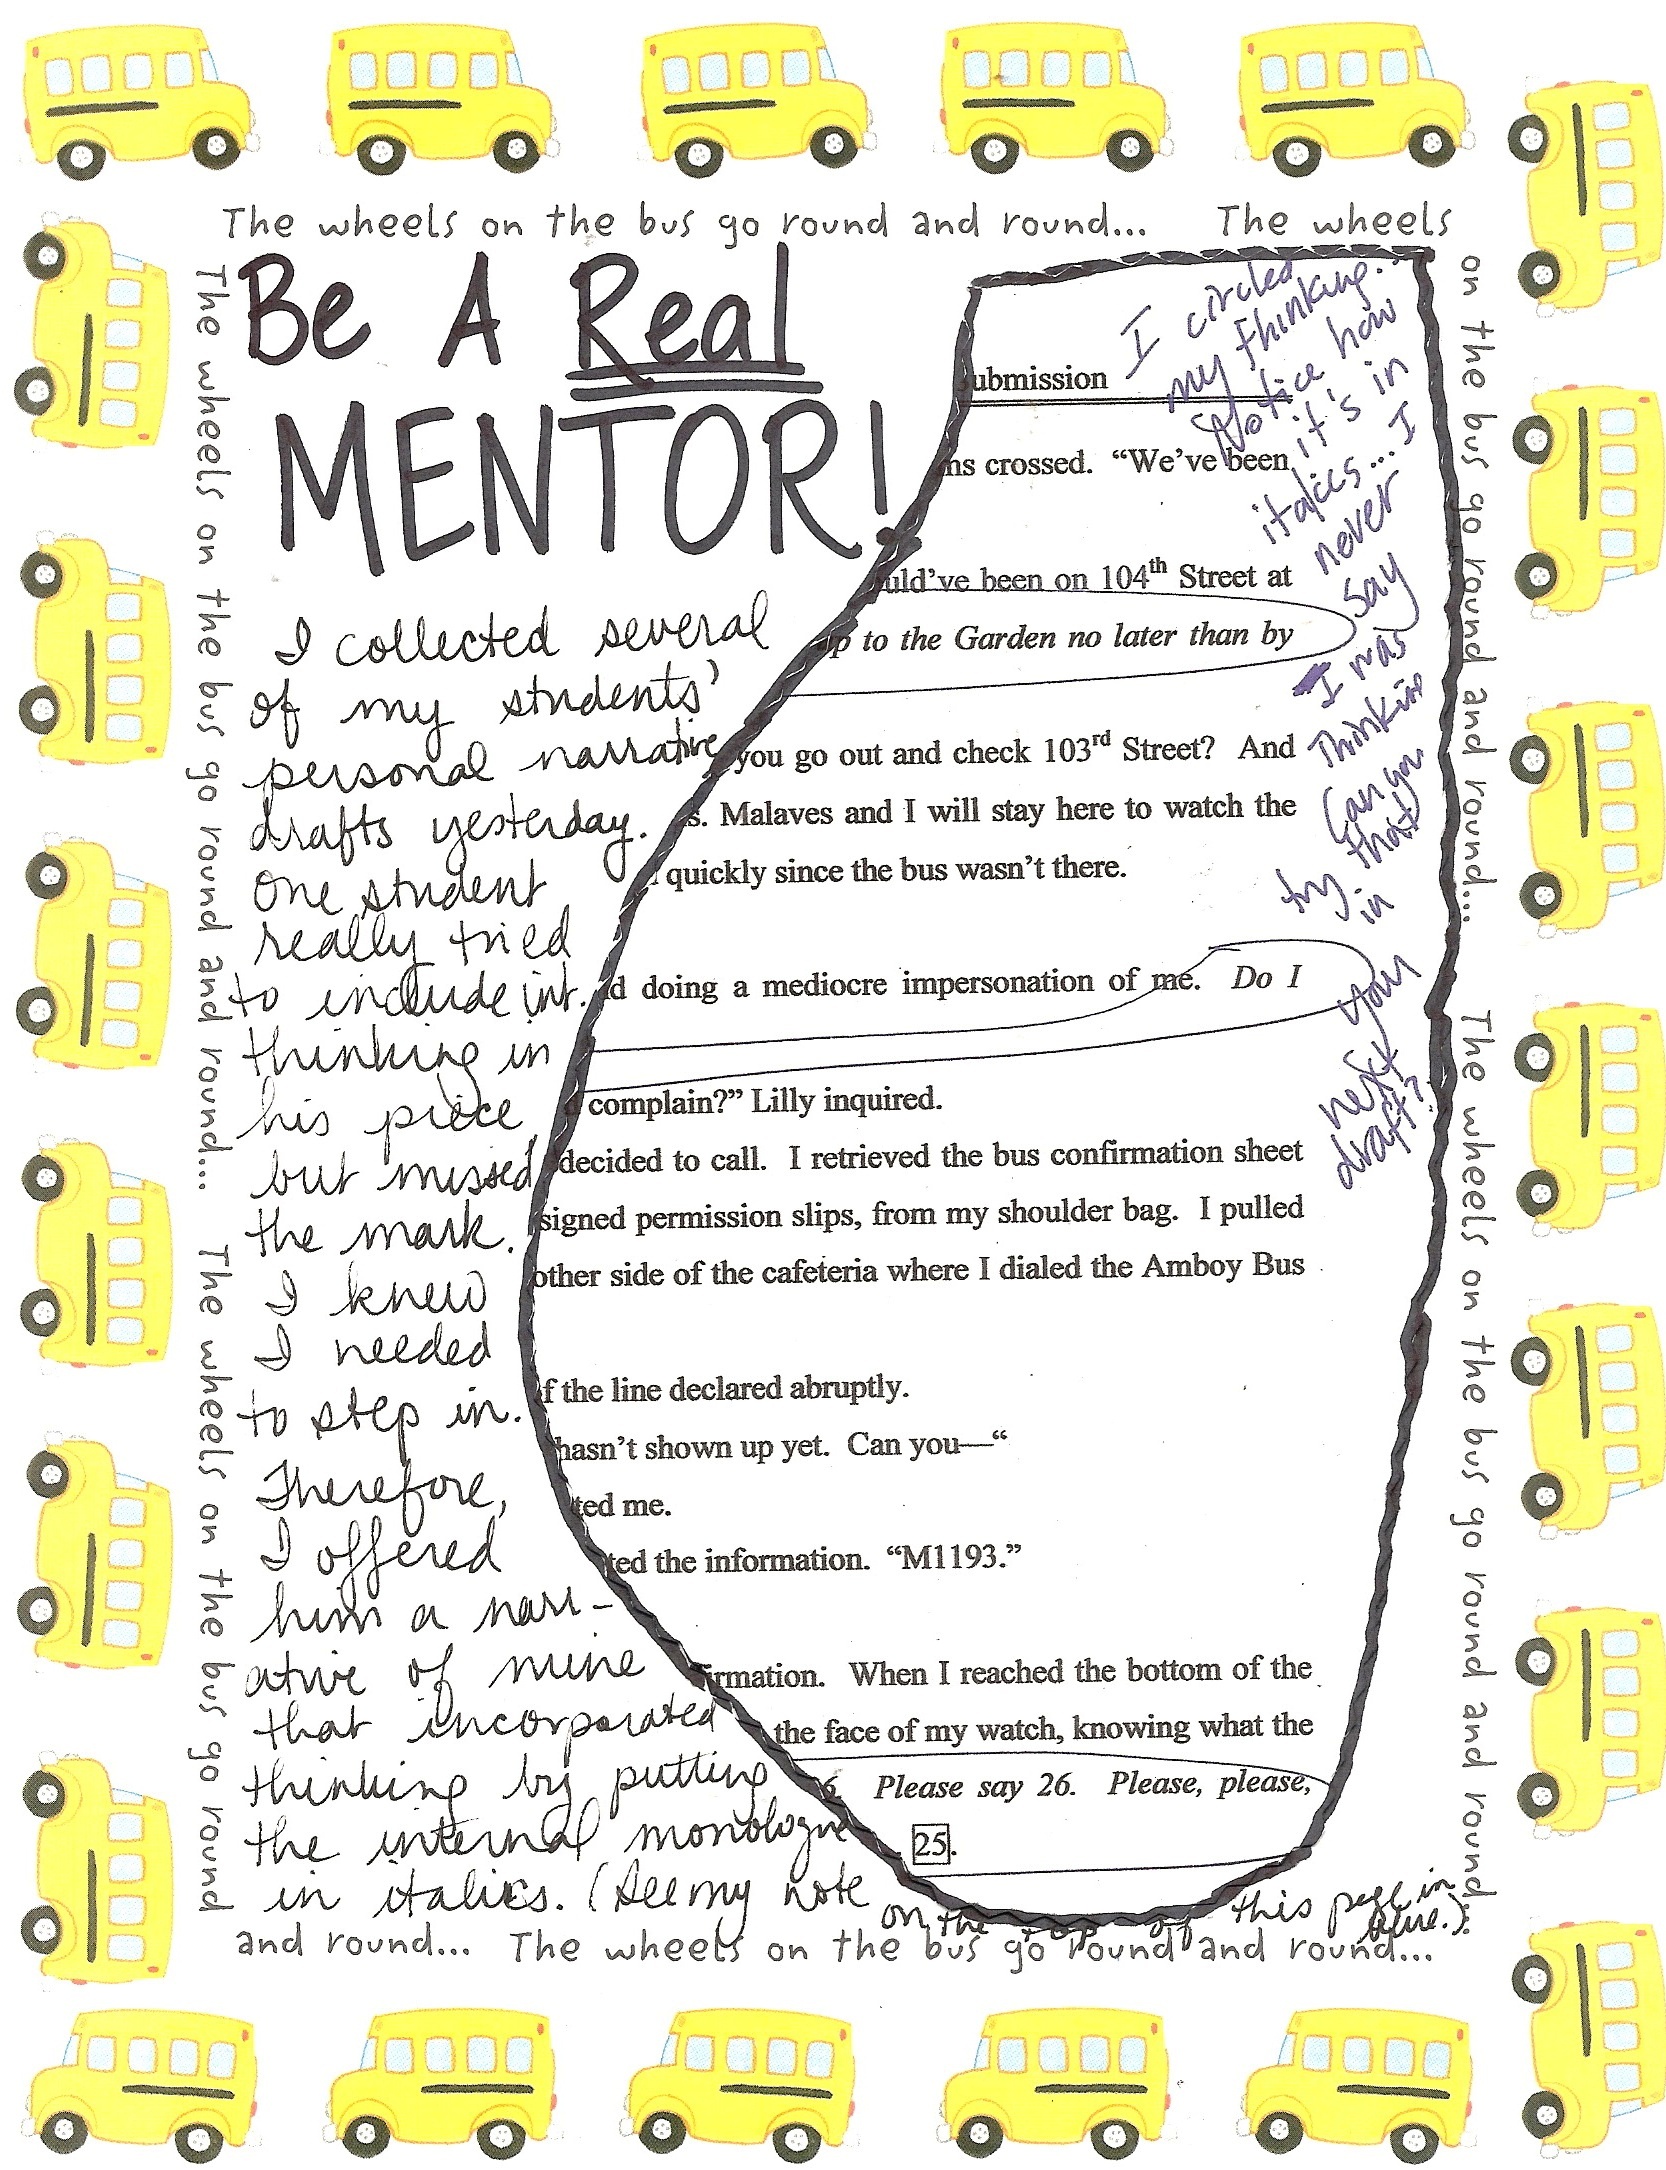 The wheels on the bus go round and round... The wheels
on the bus go round and round...
The wheels on the bus go round and round...
Be A Real
MENTOR!
I collected several
of my students'
personal narrative
drafts yesterday.
One student
really tried
to include int.
thinking in
his piece
but missed
the mark.
I knew
I needed
to step in.
Therefore,
I offered
him a narr-
ative of mine
that incorporated
thinking by putting
the internal monologue
in italics. (See my note
on the top of this page in
blue.)
ubmission
ns crossed. “We’ve been
uld’ve been on 104th Street at
up to the Garden no later than by
you go out and check 103rd Street? And
s. Malaves and I will stay here to watch the
quickly since the bus wasn’t there.
d doing a mediocre impersonation of me. Do I
d complain?” Lilly inquired.
decided to call. I retrieved the bus confirmation sheet
signed permission slips, from my shoulder bag. I pulled
other side of the cafeteria where I dialed the Amboy Bus
f the line declared abruptly.
hasn’t shown up yet. Can you—“
ted me.
ted the information. “M1193.”
irmation. When I reached the bottom of the
the face of my watch, knowing what the
6. Please say 26. Please, please,
25.
I circled
my thinking...
Notice how
it's in
italics... I
never
say
I was
thinkin
Can you
try that
in
your
next
draft?
The wheels on the bus go round and round...
The wheels on the bus go round
and round... The wheels on the bus go round and round...
The wheels on the bus go round and round...